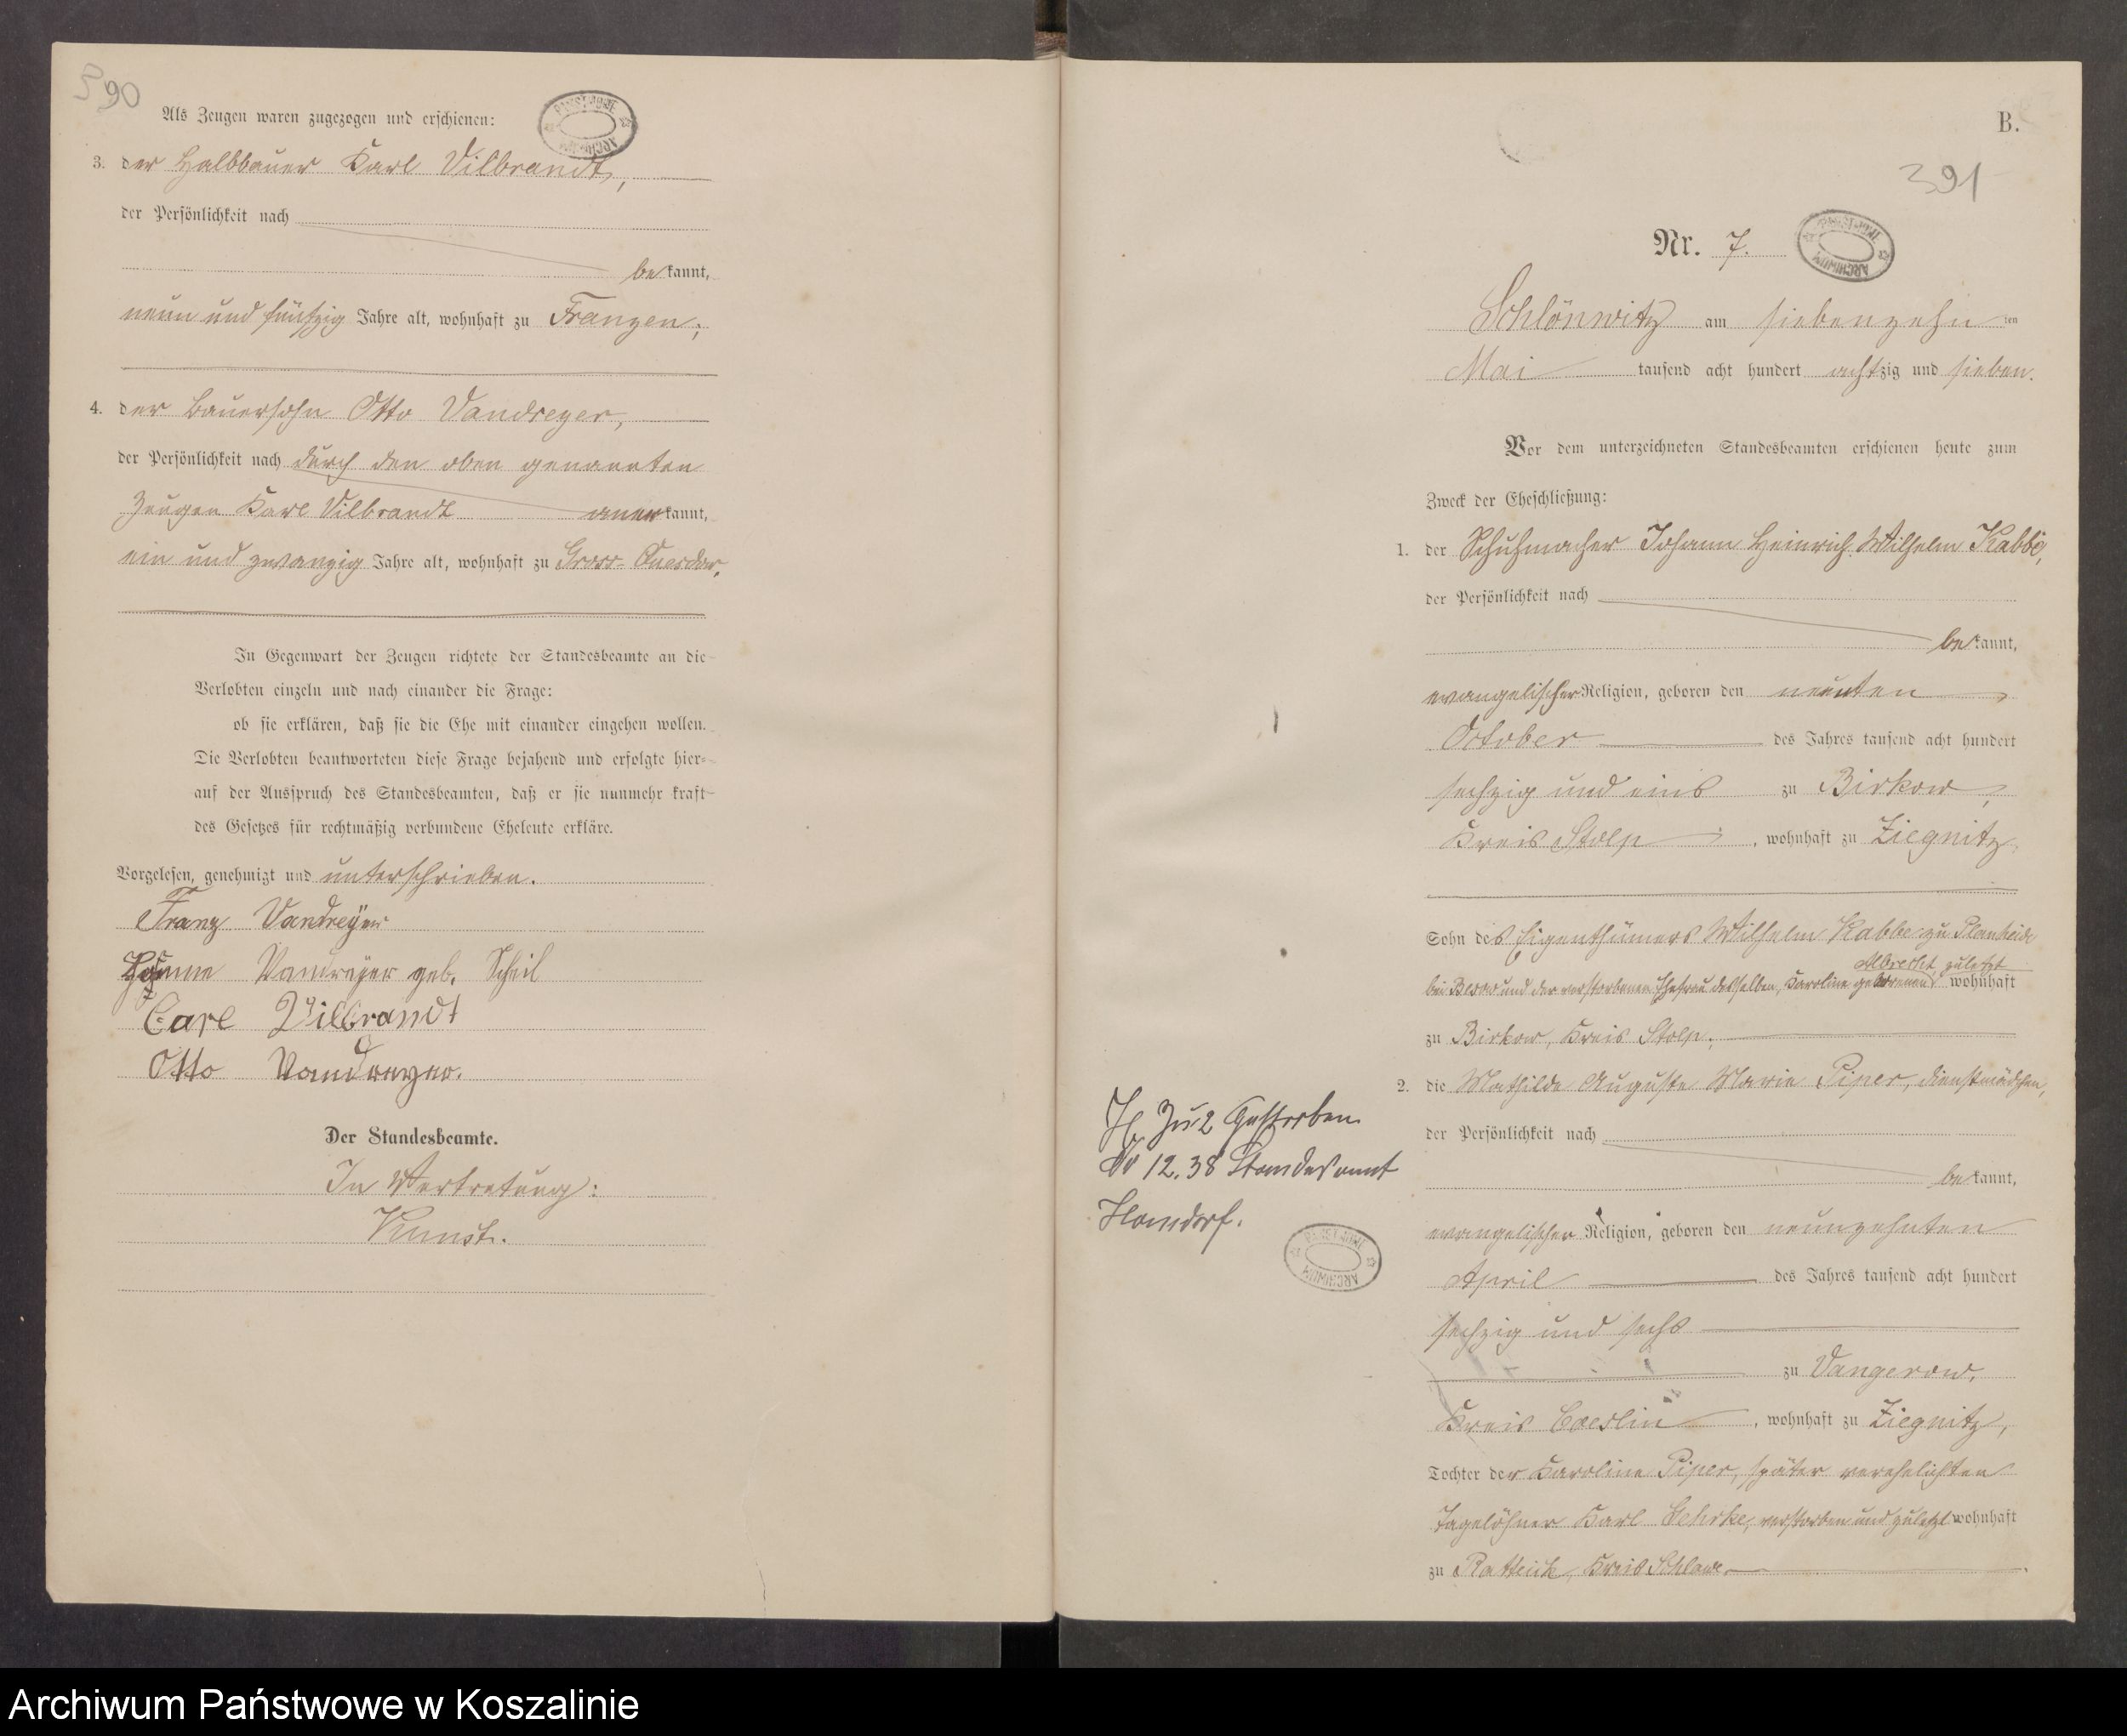 390
Als Zeugen waren zugezogen und erschienen:
PAŃSTWOWE ARCHIWUM
3. der Halbbauer Karl Vilbrandt,
der Persönlichkeit nach
bekannt,
neun und fünfzig Jahre alt, wohnhaft zu Franzen;
4. der Bauersohn Otto Vandreyer,
der Persönlichkeit nach durch den oben genannten
Zeugen Karl Vilbrandt anerkannt,
ein und zwanzig Jahre alt, wohnhaft zu Gross-Quesdow.
In Gegenwart der Zeugen richtete der Standesbeamte an die
Verlobten einzeln und nach einander die Frage:
ob sie erklären, daß sie die Ehe mit einander eingehen wollen.
Die Verlobten beantworteten diese Frage bejahend und erfolgte hier-
auf der Ausspruch des Standesbeamten, daß er sie nunmehr kraft
des Gesetzes für rechtmäßig verbundene Eheleute erkläre.
Vorgelesen, genehmigt und unterschrieben.
Franz Vandreyer
Vandreyer geb. Scheil
Carl Vilbrandt
Otto Vandreyer.
Der Standesbeamte.
In Vertretung:
B.
391
Nr. 7.
PAŃSTWOWE ARCHIWUM
Schlönwitz am siebenzehn ten
Mai tausend acht hundert achtzig und sieben.
Vor dem unterzeichneten Standesbeamten erschienen heute zum
Zweck der Eheschließung:
1. der Schuhmacher Johann Heinrich Wilhelm Kabbe,
der Persönlichkeit nach
bekannt,
evangelischer Religion, geboren den neunten
October des Jahres tausend acht hundert
sechzig und eins zu Birkow,
Kreis Stolp, wohnhaft zu Ziegnitz,
Sohn des Eigenthümers Wilhelm Kabbe zu Planheide
Albrecht, zuletzt
bei Besow und der verstorbenen Ehefrau desselben, Karoline geborenen wohnhaft
zu Birkow, Kreis Stolp;
2. die Mathilde Auguste Marie Piper, Dienstmädchen,
der Persönlichkeit nach
bekannt,
evangelischer Religion, geboren den neunzehnten
April des Jahres tausend acht hundert
sechzig und sechs
zu Vangerow,
Kreis Coeslin, wohnhaft zu Ziegnitz,
Tochter der Karoline Piper, später verehelichten
Tagelöhner Karl Gehrke, verstorben und zuletzt wohnhaft
zu Ratteick, Kreis Schlawe.
Zu 2 Gestorben
No 12.38 Standesamt
PAŃSTWOWE ARCHIWUM
Archiwum Państwowe w Koszalinie